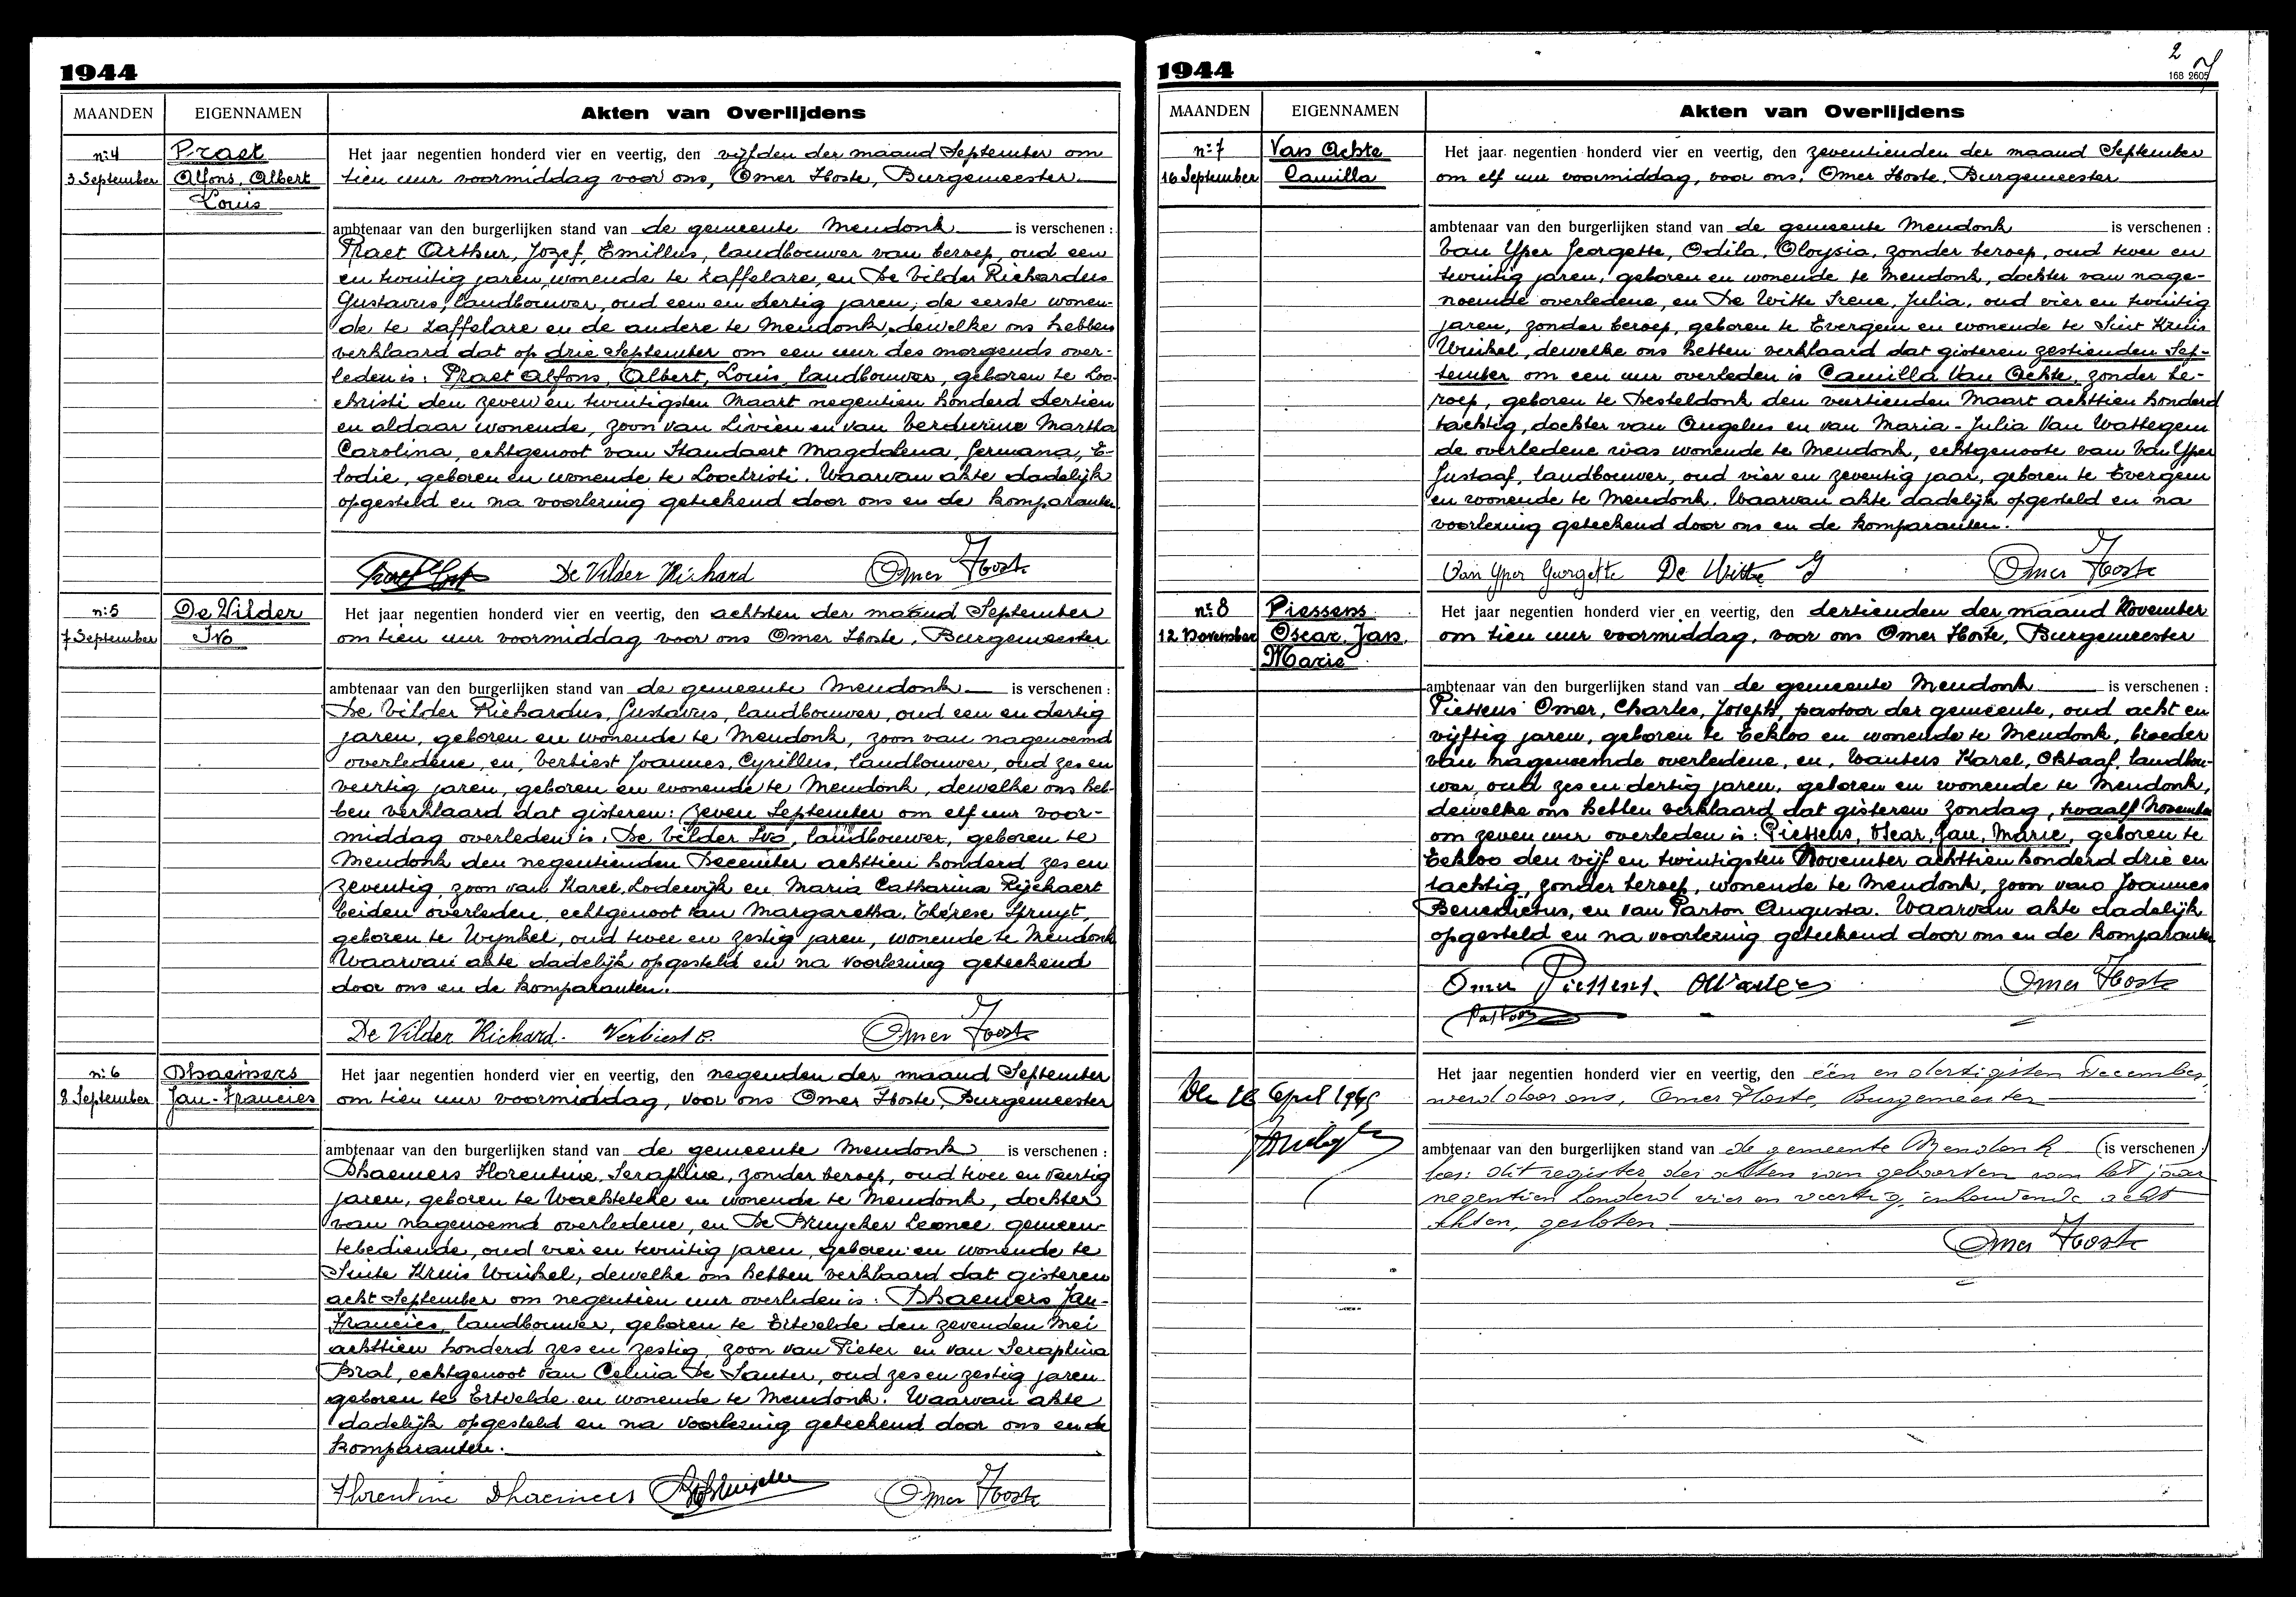 1944
MAANDEN
EIGENNAMEN
Akten van Overlijdens
n:4
3 September
Praet
Alfons, Albert
Louis
Het jaar negentien honderd vier en veertig, den vijfden der maand September om
tien uur voormiddag voor ons, Omer Hoste, Burgemeester.
ambtenaar van den burgerlijken stand van de gemeente Mendonk is verschenen :
Praet Arthur, Jozef, Emillus, landbouwer van beroep, oud een
en twintig jaren, wonende te Zaffelare, en De Vilder Richardus
Gustavus, landbouwer, oud een en dertig jaren, de eerste wonen-
de te Zaffelare en de andere te Mendonk, dewelke ons hebben
verklaard dat op drie September om een uur des morgends over-
leden is: Praet Alfons, Albert, Louis, landbouwer, geboren te Loo-
christi den zeven en twintigsten Maart negentien honderd dertien
en aldaar wonende, zoon van Livien en van Verdurme Martha
Carolina, echtgenoot van Standaert Magdalena, Germana, E-
lodie, geboren en wonende te Loochristi. Waarvan akte dadelijk
opgesteld en na voorlezing geteekend door ons en de komparanten.
De Vilder Richard Omer Hoste
n:5
7 September
De Vilder
Ivo
Het jaar negentien honderd vier en veertig, den achtsten der maand September
om tien uur voormiddag voor ons Omer Hoste, Burgemeester
ambtenaar van den burgerlijken stand van de gemeente Mendonk is verschenen :
De Vilder Richardus, Gustavus, landbouwer, oud een en dertig
jaren, geboren en wonende te Mendonk, zoon van nagenoemd
overledene, en, Verbiest Joannes, Cyrillus, landbouwer, oud zes en
veertig jaren, geboren en wonende te Mendonk, dewelke ons heb-
ben verklaard dat gisteren: zeven September om elf uur voor-
middag overleden is: De Vilder Ivo, landbouwer, geboren te
Mendonk den negentienden December achttien honderd zes en
zeventig, zoon van Karel, Lodewijk en Maria Catharina Rijckaert
beiden overleden, echtgenoot van Margaretha, Thérese Spruyt,
geboren te Wynkel, oud twee en zestig jaren, wonende te Mendonk
Waarvan akte dadelijk opgesteld en na voorlezing geteekend
door ons en de komparanten.
De Vilder Richard. Verbiest C. Omer Hoste
n:6
8 September
Dhaemers
Jan-Francies
Het jaar negentien honderd vier en veertig, den negenden der maand September
om tien uur voormiddag, voor ons Omer Hoste, Burgemeester
ambtenaar van den burgerlijken stand van de gemeente Mendonk is verschenen :
Dhaemers Florentine, Seraphine, zonder beroep, oud twee en veertig
jaren, geboren te Wachtebeke en wonende te Mendonk, dochter
van nagenoemd overledene, en De Bruycker Leonce, gemeen-
tebediende, oud vier en twintig jaren, geboren en wonende te
Sinte Kruis Winkel, dewelke ons hebben verklaard dat gisteren
acht September om negentien uur overleden is: Dhaemers Jan-
Francies, landbouwer, geboren te Ertvelde den zevenden Mei
achttien honderd zes en zestig, zoon van Pieter en van Seraphina
Bral, echtgenoot van Celina De Sauter, oud zes en zestig jaren
geboren te Ertvelde en wonende te Mendonk. Waarvan akte
dadelijk opgesteld en na voorlezing geteekend door ons en de
komparanten.
Florentine Dhaemers Omer Hoste
1944
2
168 2605
MAANDEN
EIGENNAMEN
Akten van Overlijdens
n:7
16 September
Van Achte
Camilla
Het jaar negentien honderd vier en veertig, den zeventienden der maand September
om elf uur voormiddag, voor ons, Omer Hoste, Burgemeester
ambtenaar van den burgerlijken stand van de gemeente Mendonk is verschenen :
Van Yper Georgette, Odila, Aloysia, zonder beroep, oud twee en
twintig jaren, geboren en wonende te Mendonk, dochter van nage-
noemde overledene, en De Witte Irene, Julia, oud vier en twintig
jaren, zonder beroep, geboren te Evergem en wonende te Sint Kruis
Winkel, dewelke ons hebben verklaard dat gisteren zestienden Sep-
tember om een uur overleden is Camilla Van Achte, zonder be-
roep, geboren te Desteldonk den veertienden Maart achttien honderd
tachtig, dochter van Angelus en van Maria-Julia Van Wattegem
de overledene was wonende te Mendonk, echtgenoote van Van Yper
Gustaaf, landbouwer, oud vier en zeventig jaar, geboren te Evergem
en wonende te Mendonk. Waarvan akte dadelijk opgesteld en na
voorlezing geteekend door ons en de komparanten.
Van Yper Georgette De Witte J Omer Hoste
n:8
12 November
Piessens
Oscar, Jan,
Marie
Het jaar negentien honderd vier en veertig, den dertienden der maand November
om tien uur voormiddag, voor ons Omer Hoste, Burgemeester
ambtenaar van den burgerlijken stand van de gemeente Mendonk is verschenen :
Piessens Omer, Charles, Joseph, pastoor der gemeente, oud acht en
vijftig jaren, geboren te Eekloo en wonende te Mendonk, broeder
van nagenoemde overledene, en, Wauters Karel, Oktaaf, landbou-
wer, oud zes en dertig jaren, geboren en wonende te Mendonk,
dewelke ons hebben verklaard dat gisteren zondag, twaalf November
om zeven uur overleden is: Piessens, Oscar, Jan, Marie, geboren te
Eekloo den vijf en twintigsten November achttien honderd drie en
tachtig, zonder beroep, wonende te Mendonk, zoon van Joannes
Benedictus, en van Parton Augusta. Waarvan akte dadelijk
opgesteld en na voorlezing geteekend door ons en de komparanten
Omer Piessens. Omer Hoste
Pastoor
April 1945
Het jaar negentien honderd vier en veertig, den één en dertigsten December,
werd door ons, Omer Hoste, Burgemeester
ambtenaar van den burgerlijken stand van de gemeente Mendonk (is verschenen :)
lees: dit register der akten van geboorten van het jaar
negentien honderd vier en veertig, inhoudende acht
akten, gesloten.
Omer Hoste